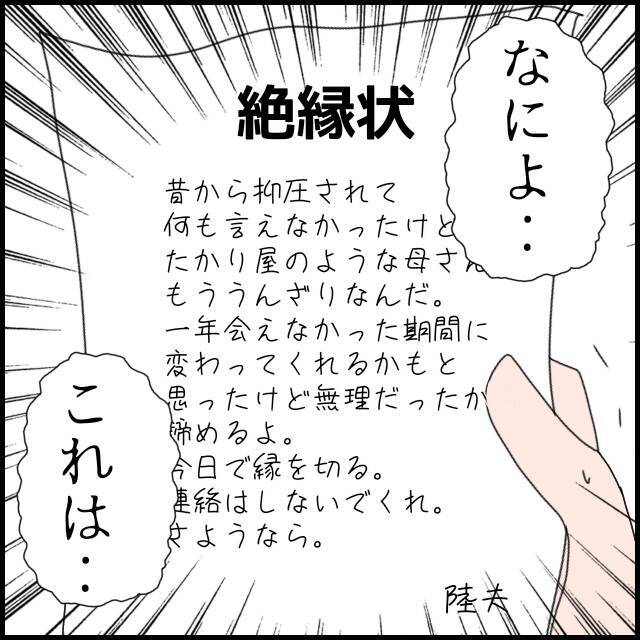 なによ‥
絶縁状
昔から抑圧されて
何も言えなかったけど
たかり屋のような母さん
もううんざりなんだ。
一年会えなかった期間に
変わってくれるかもと
思ったけど無理だったか
諦めるよ。
今日で縁を切る。
連絡はしないでくれ。
さようなら。
陸夫
これは‥